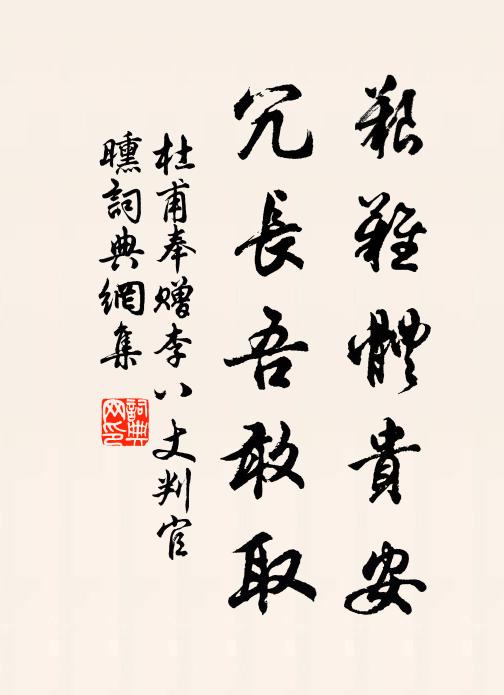 艱難體貴安
冗長吾敢取
杜甫奉贈李八丈判官
曛詞典網集
詞典
网印